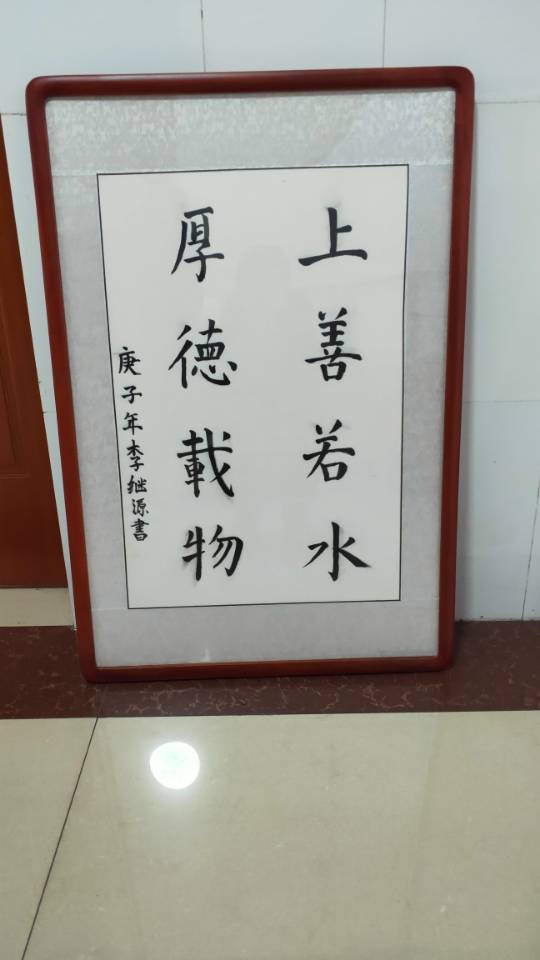 上善若水
厚德載物
庚子年李继源書